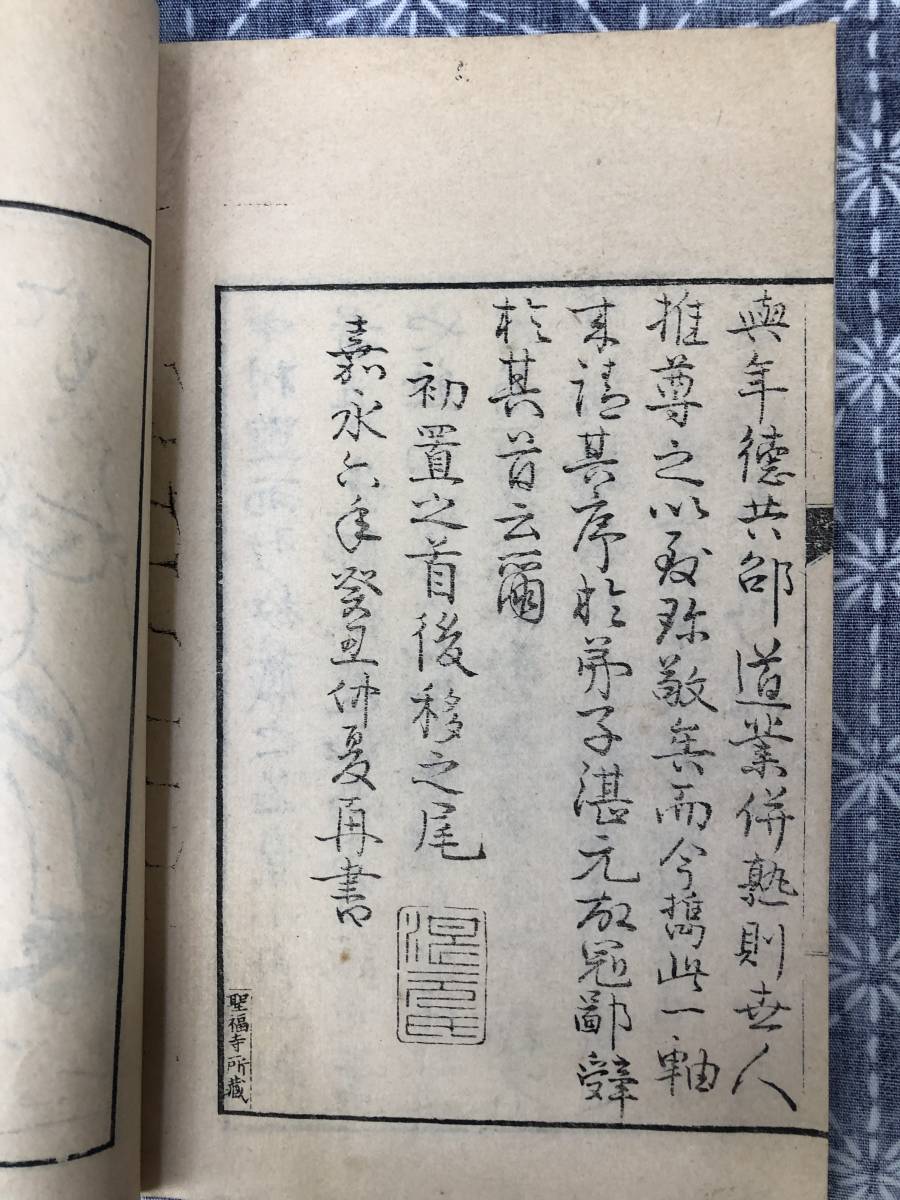 與年德共邵道業併熟則世人
推尊之以致珎敬矣而今携此一軸
来請其序於弟子湛元故冠鄙辞
於其首云爾
初置之首後移之尾
嘉永六年癸丑仲夏再書
聖福寺所藏